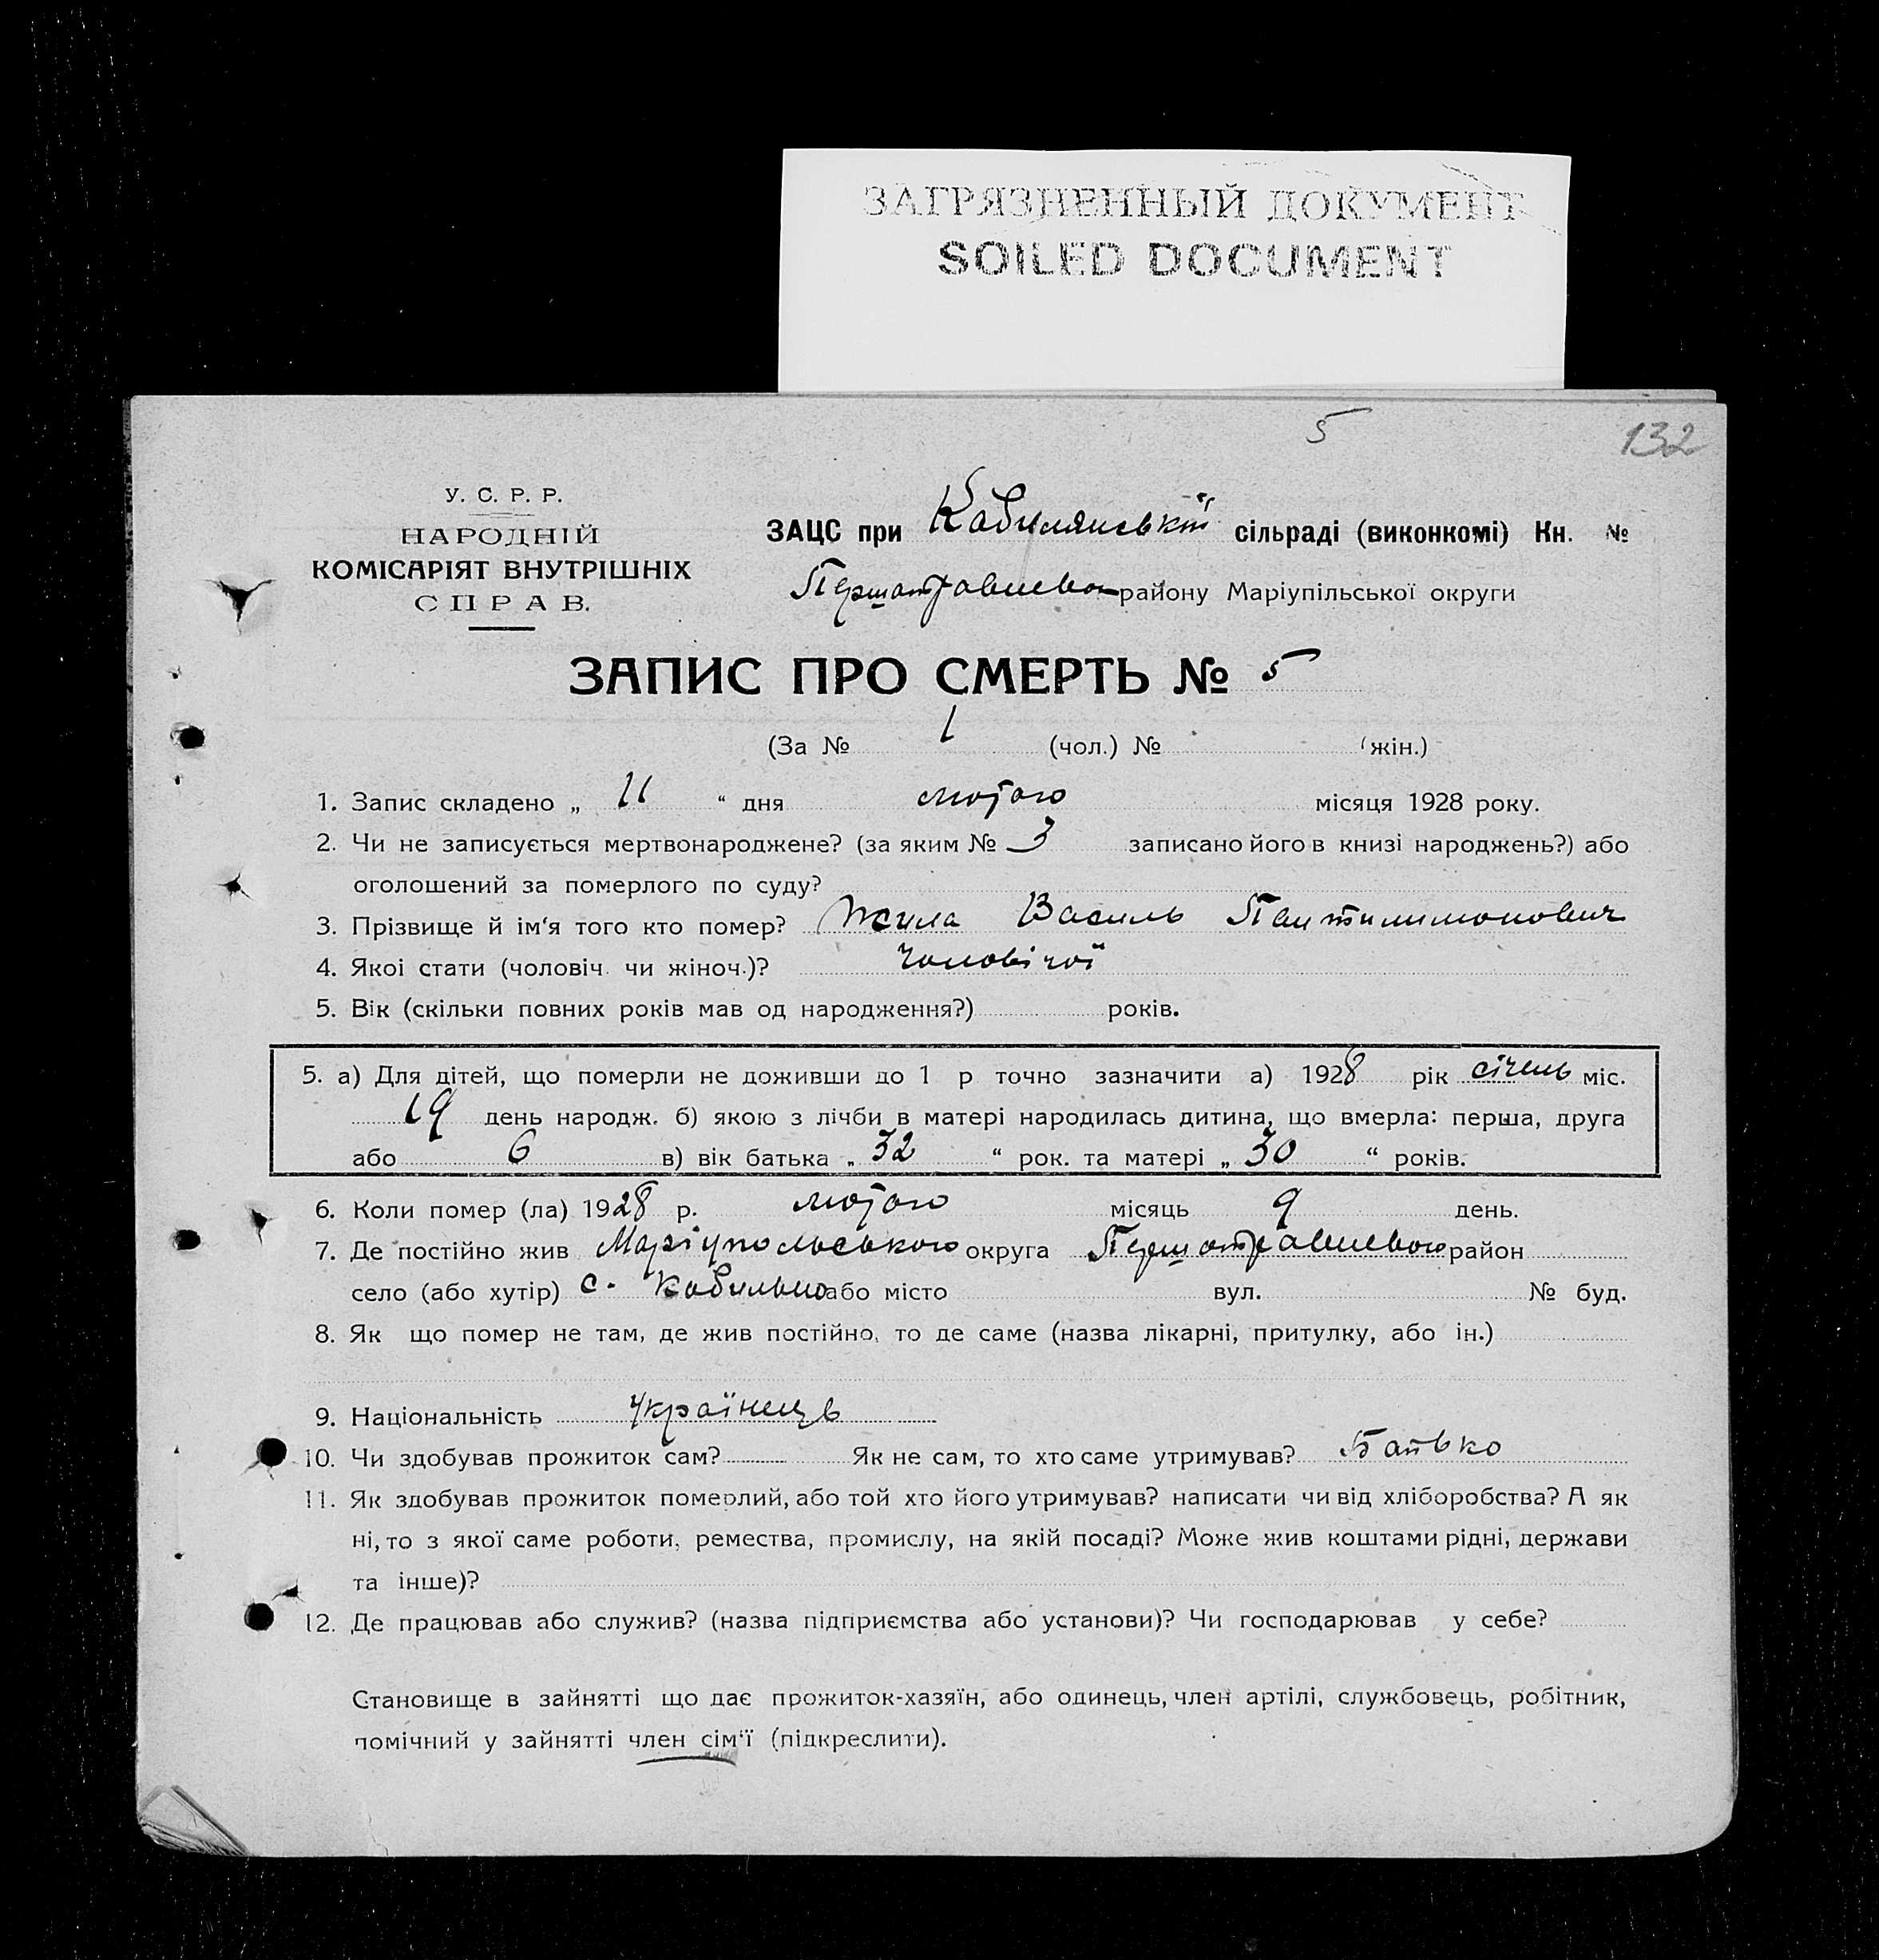 ЗАГРЯЗНЕННЫЙ ДОКУМЕНТ
SOILED DOCUMENT
5
132
У. С. Р. Р.
НАРОДНІЙ
КОМІСАРІЯТ ВНУТРІШНІХ
СПРАВ.
ЗАЦС при Кабилянській сільраді (виконкомі) Кн. №
району Маріупільської округи
ЗАПИС ПРО СМЕРТЬ № 5
(За № 1 (чол.) № (жін.)
1. Запис складено „ 11 “ дня лютого місяця 1928 року.
2. Чи не записується мертвонароджене? (за яким № 3 записано його в книзі народжень?) або
оголошений за померлого по суду?
3. Прізвище й ім‘я того кто помер? Жила Василь Пантилимонович
4. Якоі стати (чоловіч. чи жіноч.)? Чоловічої
5. Вік (скільки повних років мав од народження?) років.
5. а) Для дітей, що померли не доживши до 1 р точно зазначити а) 1928 рік січень міс.
19 день народж. б) якою з лічби в матері народилась дитина, що вмерла: перша, друга
або 6 в) вік батька „ 32 “ рок. та матері „ 30 “ років.
6. Коли помер (ла) 1928 р. лютого місяць 9 день.
7. Де постійно жив Маріупольського округа Першотравневого район
село (або хутір) с. Кабильно або місто вул. № буд.
8. Як що помер не там, де жив постійно, то де саме (назва лікарні, притулку, або ін.)
9. Національність Українець
10. Чи здобував прожиток сам? Як не сам, то хто саме утримував? Батько
11. Як здобував прожиток померлий, або той хто його утримував? написати чи від хліборобства? А як
ні, то з якої саме роботи, ремества, промислу, на якій посаді? Може жив коштами рідні, держави
та інше)?
12. Де працював або служив? (назва підприємства або установи)? Чи господарював у себе?
Становище в зайнятті що дає прожиток-хазяїн, або одинець, член артілі, службовець, робітник,
помічний у зайнятті член сім‘ї (підкреслити).